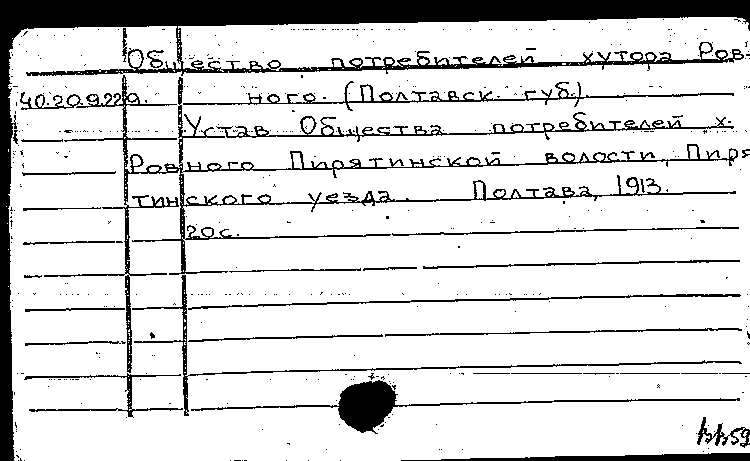 Общество потребителей хутора Ров-
40.20.9.229. ного. (Полтавск. губ.)
Устав Общества потребителей х.
Ровного Пирятинской волости, Пиря
тинского уезда. Полтава, 1913.
20с.